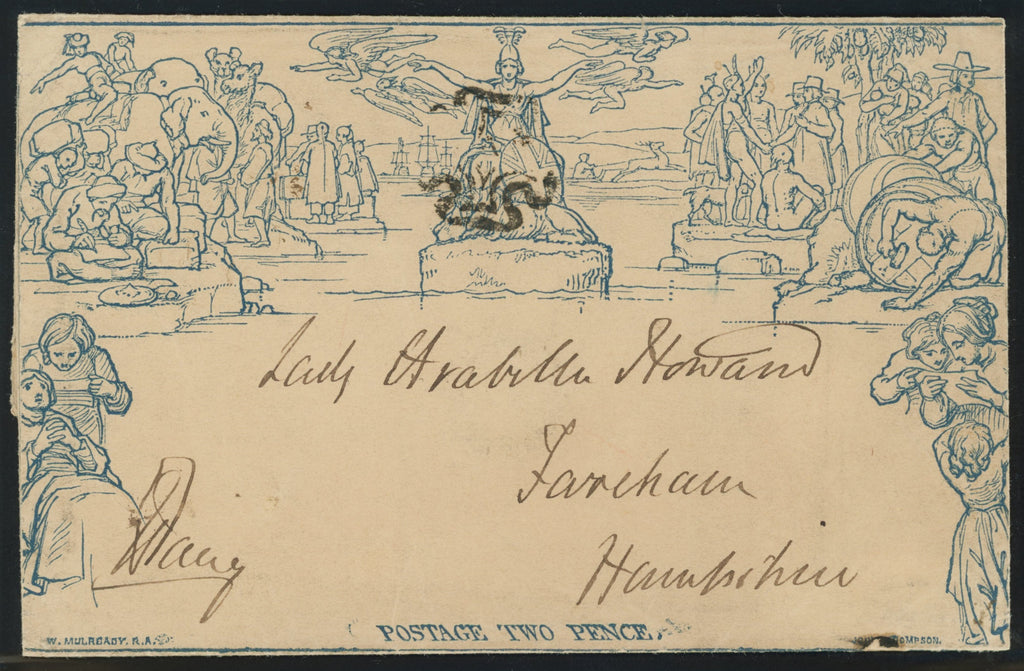 Lady Arabella Howard
Fareham
Hampshire
POSTAGE TWO PENCE.
W. MULREADY. R.A.
JOHN THOMPSON.